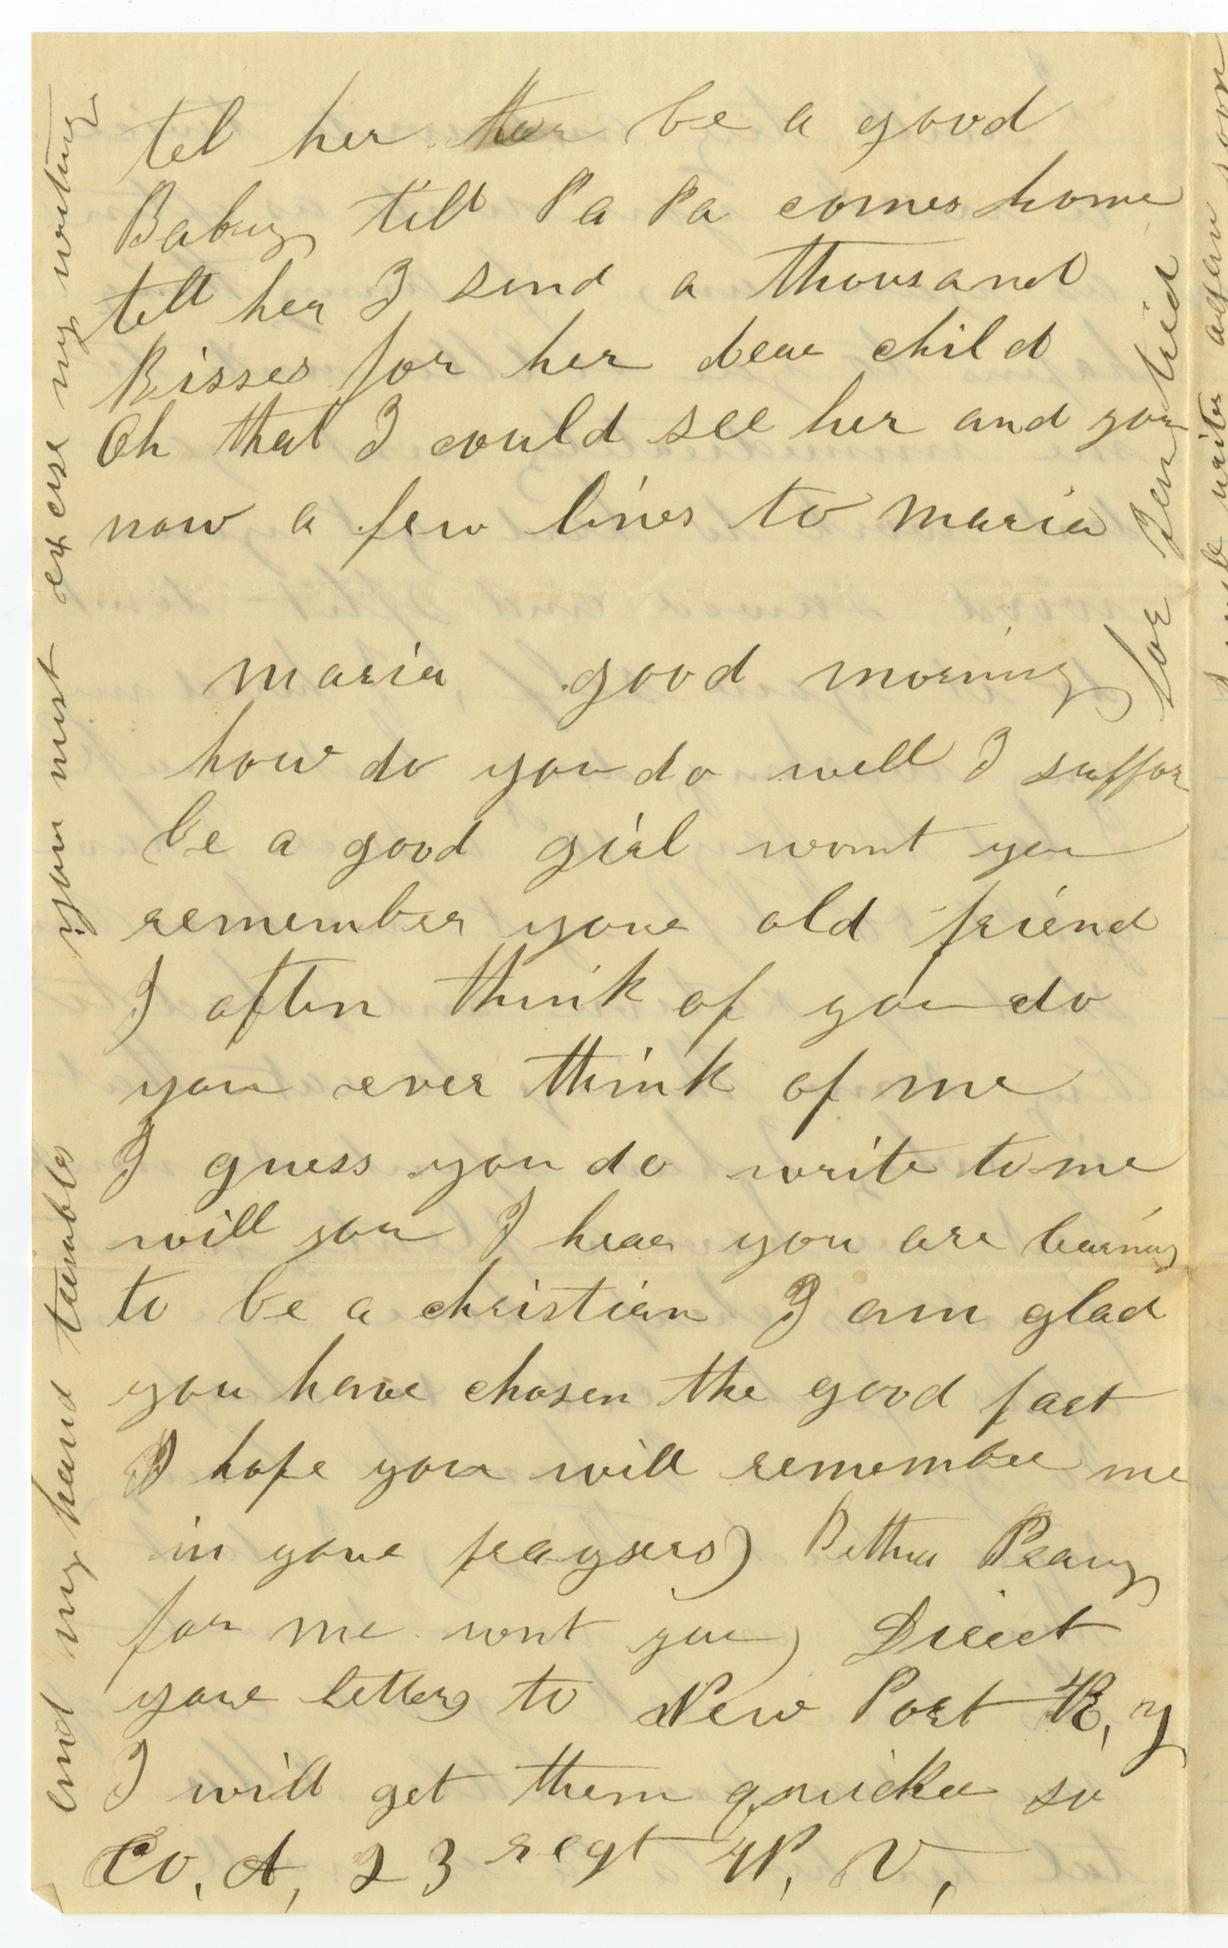 tel her to be a good
Baby till Pa Pa comes home
tell her I send a thousand
Kisses for her dear child
Oh that I could see her and you
now a few lines to maria
maria good morning
how do you do well I suffor
be a good girl wornt you
remember youre old friend
I often think of you do
you ever think of me
I guess you do write to me
will you I hear you are learning
to be a christian I am glad
you have chosen the good part
I hope you will remember me
in youre prayers)
Pray
for me wont you) Direct
youre letters to New Port K, y
I will get them quicker so
Co, A, 23 regt W, V,
for I em tired
you must excuse my writing
and my hand trembles
writer again soon